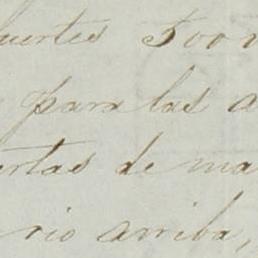 fuertes 500
para las a
ertas de ma
rio arriba,